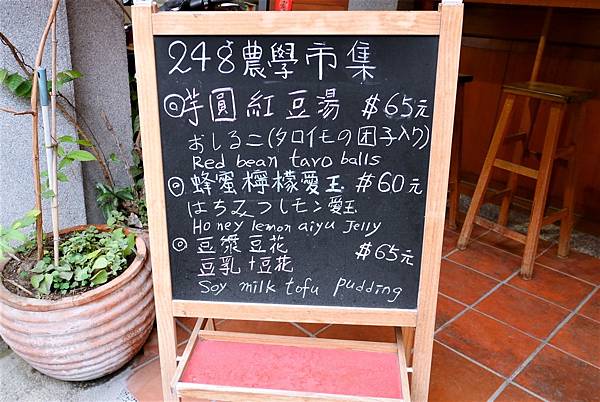 248農學市集
◎芋圓紅豆湯 $65元
おしるこ(タロイモの团子入り)
Red bean taro balls
◎蜂蜜檸檬愛玉 $60元
はちみつレモン愛玉
Honey lemon aiyu Jelly
◎豆漿豆花 $65元
豆乳+豆花
Soy milk tofu pudding